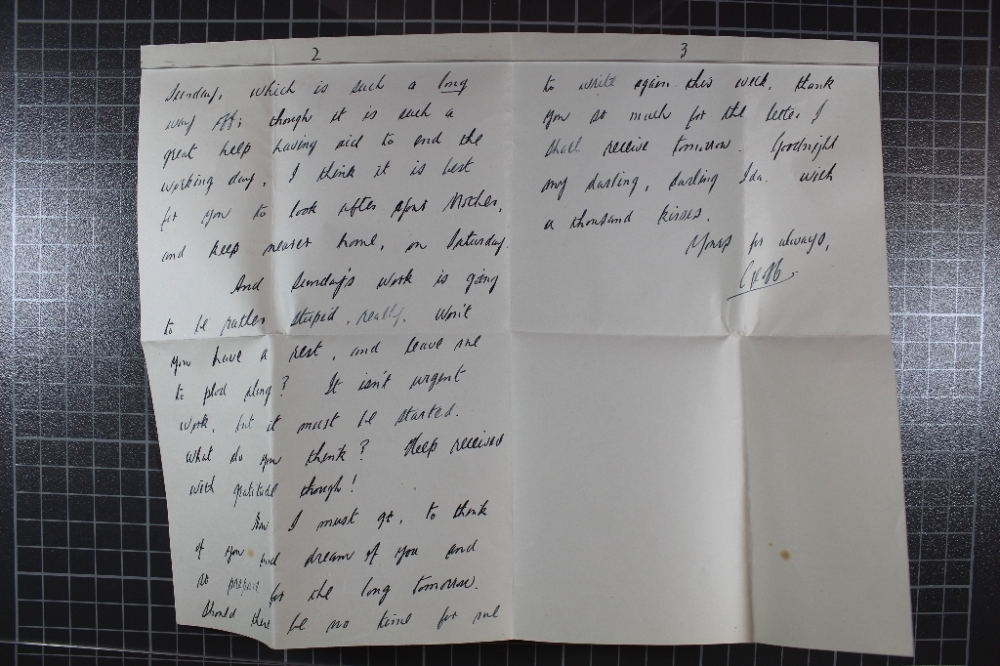 2
Sunday, which is such a long
way off; though it is such a
great help having aid to end the
working day. I think it is best
for you to look after your Mother,
and keep nearer home, on Saturday.
And Sunday's work is going
to be rather stupid, really. Won't
you have a rest, and leave me
to plod along? It isn't urgent
work, but it must be started.
What do you think? Help received
with gratitude though!
Now I must go, to think
of you and dream of you and
so prepare for the long tomorrow.
Should there be no time for me
3
to write again this week, thank
you so much for the letter I
shall receive tomorrow. Goodnight
my darling, darling Ida. With
a thousand kisses.
Yours for always,